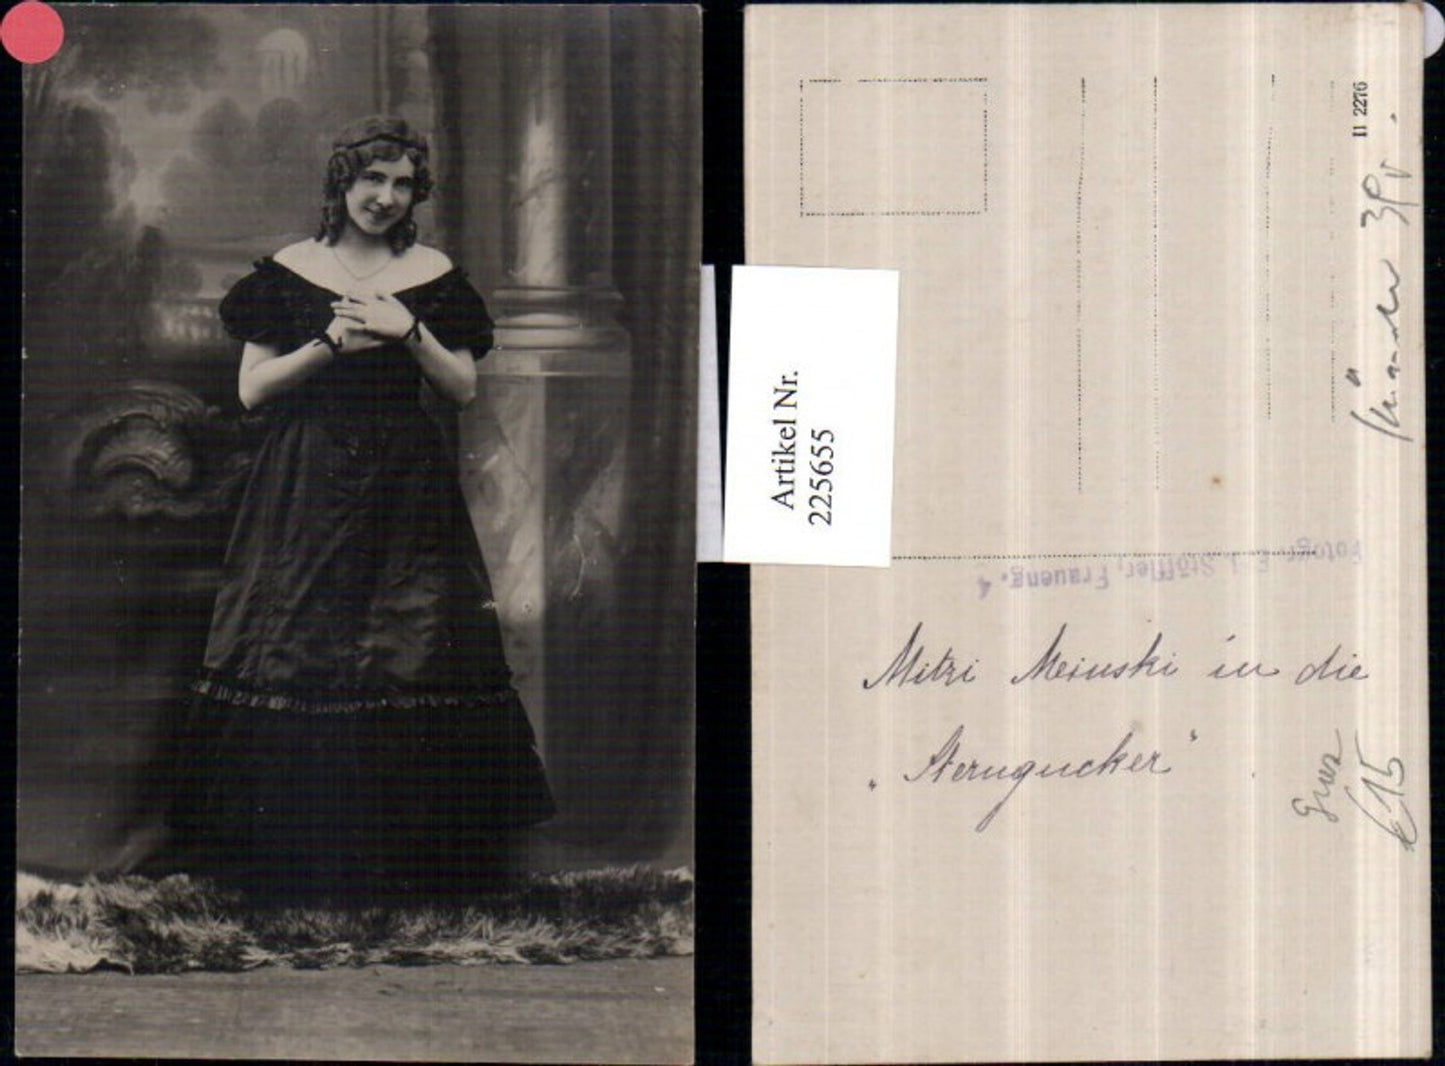 Artikel Nr.
225655
II 2276
Fotogr. E. J. Stöffler, Fraueng. 4
Mitzi Meinski in die
„Sterngucker"
Graz
€15